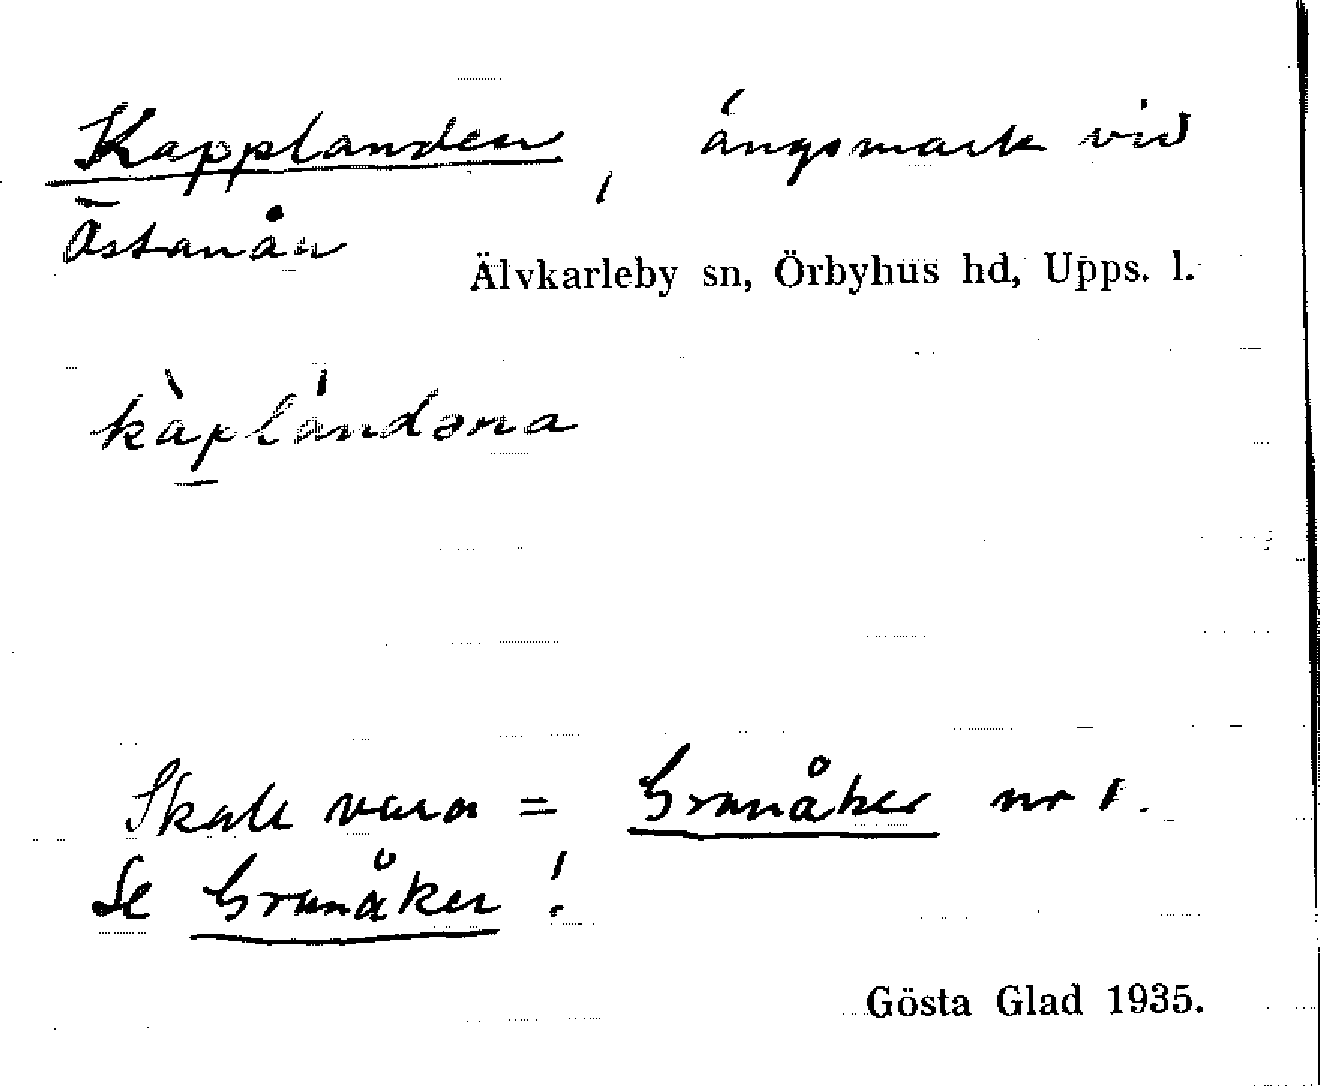 Kapplanden, ängsmark vid
Östanån
Älvkarleby sn, Örbyhus hd, Upps. l.
kàp̠lándəna
Skall vara = Granåker nr 1.
Se Granåker!
Gösta Glad 1935.